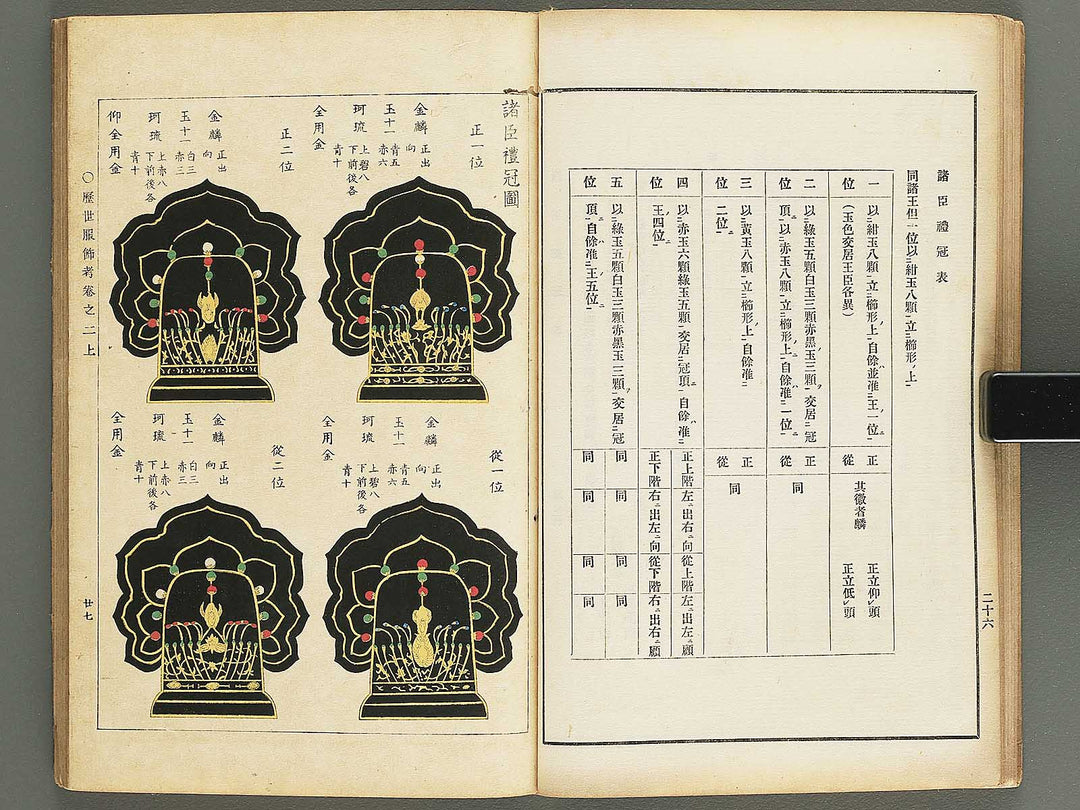 諸臣禮冠表
同諸王但一位以ニ紺玉八顆ヲ立ニ櫛形ノ上ニ
一位
以ニ紺玉八顆ヲ立ニ櫛形上ニ、自餘ハ並准ニ王一位ニ
(玉色交居王臣各異)
正
從
其徽者麟
正立仰レ頭
正立低レ頭
二位
以ニ綠玉五顆白玉三顆赤黑玉三顆ヲ交居ニ冠
頂ニ以ニ赤玉八顆ヲ立ニ櫛形上ニ自餘ハ准ニ一位ニ
正
從
同
三位
以ニ黃玉八顆ヲ立ニ櫛形上ニ自餘准ニ
二位ニ
正
從
同
四位
以ニ赤玉六顆綠玉五顆ヲ交居ニ冠頂ニ自餘ハ准ニ
王四位ニ
正上階
左ニ出右ニ向
從上階
左ニ出左ニ顧
正下階
右ニ出左ニ向
從下階
右ニ出右ニ顧
五位
以ニ綠玉五顆白玉三顆赤黑玉三顆ヲ交居ニ冠
頂ニ自餘准ニ王五位ニ
同
同
同
同
同
同
同
同
二十六
諸臣禮冠圖
正一位
金麟 正出向
玉十一 青五 赤六
珂琉 上碧八 下前後各青十
全用金
正二位
金麟 正出向
玉十一 白三 赤三
珂琉 上赤八 下前後各青十
仰全用金
從一位
金麟 正出向
玉十一 青五 赤六
珂琉 上碧八 下前後各青十
全用金
從二位
金麟 正出向
玉十一 白三 赤三
珂琉 上赤八 下前後各青十
全用金
○歷世服飾考卷之二上
廿七